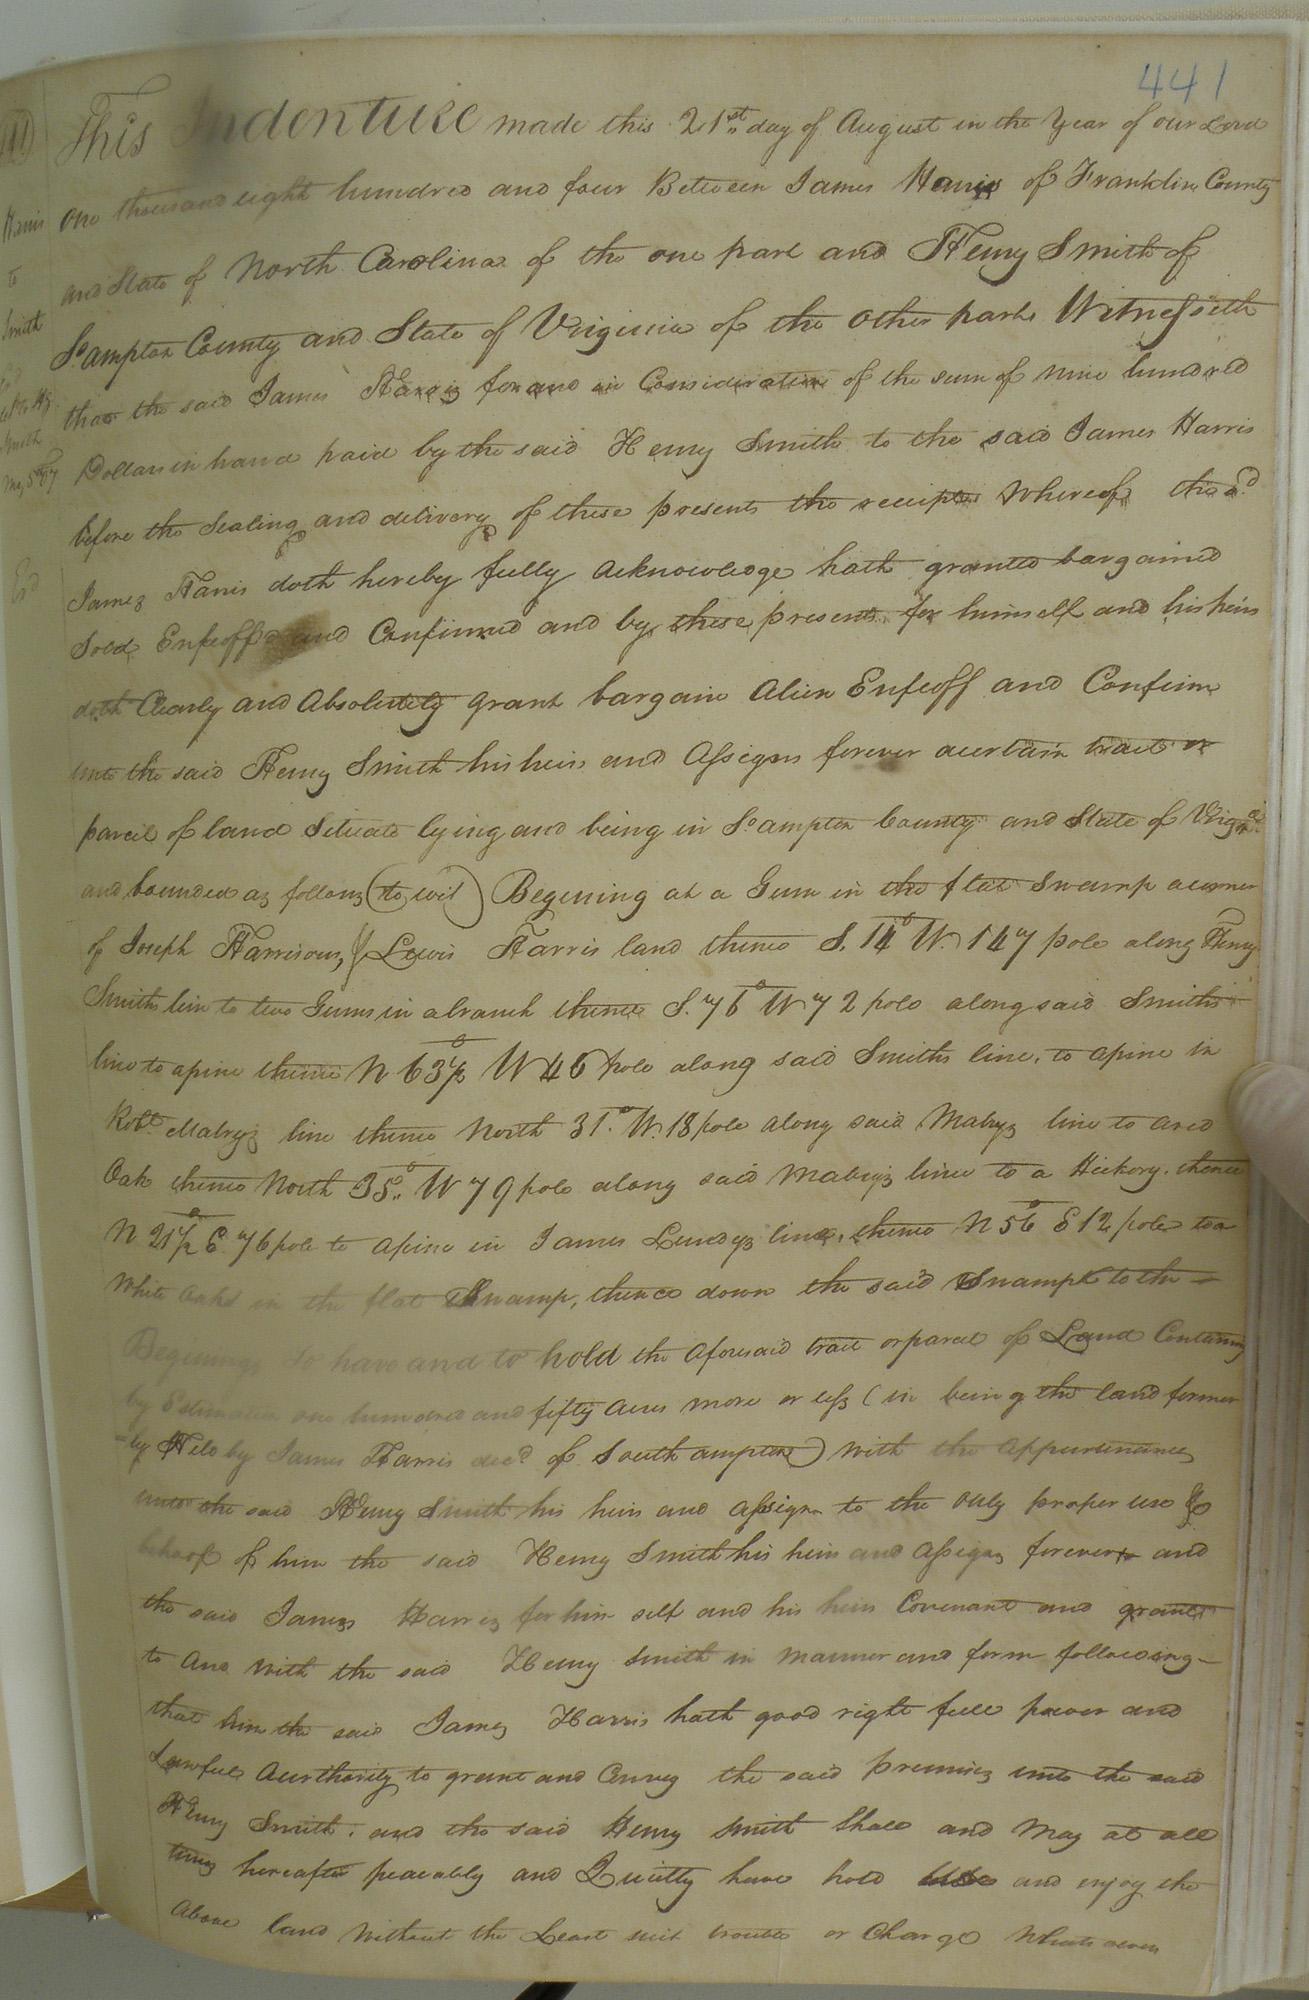 441
This Indenture made this 21st day of August in the Year of our Lord
one thousand eight hundred and four Between James Harris of Franklin County
and State of North Carolina of the one part and Henry Smith of
So.ampton County and State of Virginia of the other part Witnesseth
that the said James Harris for and in Consideration of the sum of nine hundred
Dollars in hand paid by the said Henry Smith to the said James Harris
before the Sealing and delivery of these presents the receipt whereof the sd
James Harris doth hereby fully Acknowledge hath granted bargained
Sold Enfeoffd and Confirmed and by these presents for himself and his heirs
doth Clearly and Absolutely grant bargain Alien Enfeoff and Confirm
unto the said Henry Smith his heirs and Assigns forever a certain tract or
parcel of land Situate lying and being in So.ampton County and State of Virga.
and bounded as follows (to wit) Begining at a Gum in the flat Swamp a corner
of Joseph Harrisons, & Lewis Harris land thence S. 14° W. 147 pole along Henry
Smiths line to two Gums in a branch thence S. 76° W 72 pole along said Smiths
line to a pine thence N 63½° W 46 pole along said Smiths line, to a pine in
Robt. Mabrys line thence North 31° W. 18 pole along said Mabrys line to a red
Oak thence North 35° W 79 pole along said Mabrys line to a Hickory. thence
N 21½° E. 76 pole to a pine in James Lundys line, thence N 56° E 12 pole to a
White Oak in the flat Swamp, thence down the said Swamp to the
Begining, To have and to hold the aforesaid tract or parcel of Land Containing
by Estimation one hundred and fifty Acres more or less (in being the land former
-ly Held by James Harris decd. of Southampton) with the Appurtenances
unto the said Henry Smith his heirs and assigns to the only proper use &
behoof of him the said Henry Smith his heirs and Assigns forever and
the said James Harris for him self and his heirs Covenant and grant
to and with the said Henry Smith in manner and form following
that him the said James Harris hath good right full power and
Lawfull Aurthority to grant and Convey the said premises unto the said
Henry Smith. and the said Henry Smith Shall and May at all
times hereafter peaceably and Quietly have hold use and enjoy the
Above land Without the Least suit trouble or Charge Whatsoever
Harris
to
Smith